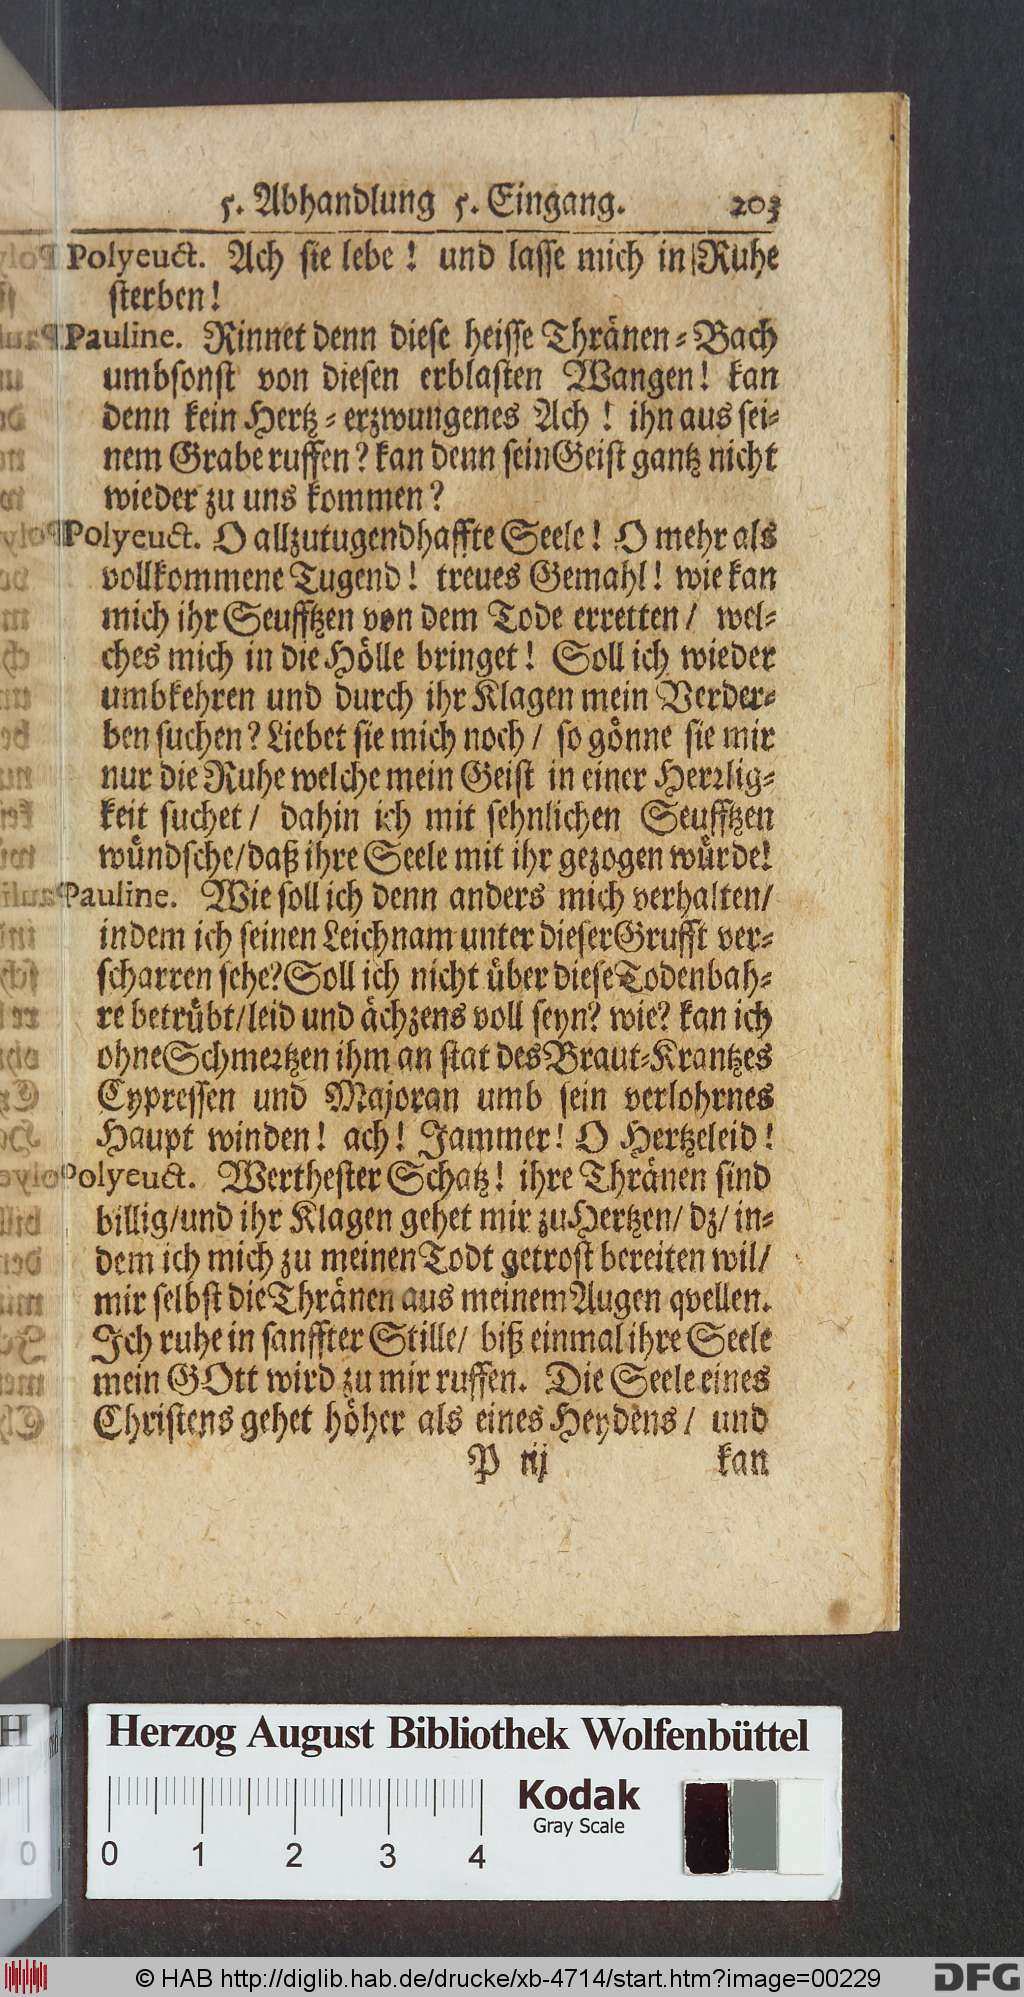 5. Abhandlung 5. Eingang. 203
Polyeuct. Ach sie lebe! und lasse mich in Ruhe
sterben!
Pauline. Rinnet denn diese heisse Thränen-Bach
umbsonst von diesen erblasten Wangen! kan
denn kein Hertz-erzwungenes Ach! ihn aus sei-
nem Grabe ruffen? kan denn sein Geist gantz nicht
wieder zu uns kommen?
Polyeuct. O allzutugendhaffte Seele! O mehr als
vollkommene Tugend! treues Gemahl! wie kan
mich ihr Seufftzen von dem Tode erretten/ wel-
ches mich in die Hölle bringet! Soll ich wieder
umbkehren und durch ihr Klagen mein Verder-
ben suchen? Liebet sie mich noch/ so gönne sie mir
nur die Ruhe welche mein Geist in einer Herrlig-
keit suchet/ dahin ich mit sehnlichen Seufftzen
wündsche/daß ihre Seele mit ihr gezogen würde!
Pauline. Wie soll ich denn anders mich verhalten/
indem ich seinen Leichnam unter dieser Grufft ver-
scharren sehe? Soll ich nicht über diese Todenbah-
re betrübt/leid und ächzens voll seyn? wie? kan ich
ohne Schmertzen ihm an stat des Braut-Krantzes
Cypressen und Majoran umb sein verlohrnes
Haupt winden! ach! Jammer! O Hertzeleid!
Polyeuct. Werthester Schatz! ihre Thränen sind
billig/und ihr Klagen gehet mir zu Hertzen/ dz/ in-
dem ich mich zu meinen Todt getrost bereiten wil/
mir selbst die Thränen aus meinem Augen qvellen.
Ich ruhe in sanffter Stille/ biß einmal ihre Seele
mein GOtt wird zu mir ruffen. Die Seele eines
Christens gehet höher als eines Heydens/ und
P iij kan
Herzog August Bibliothek Wolfenbüttel
Kodak
Gray Scale
0 1 2 3 4
© HAB http://diglib.hab.de/drucke/xb-4714/start.htm?image=00229
DFG